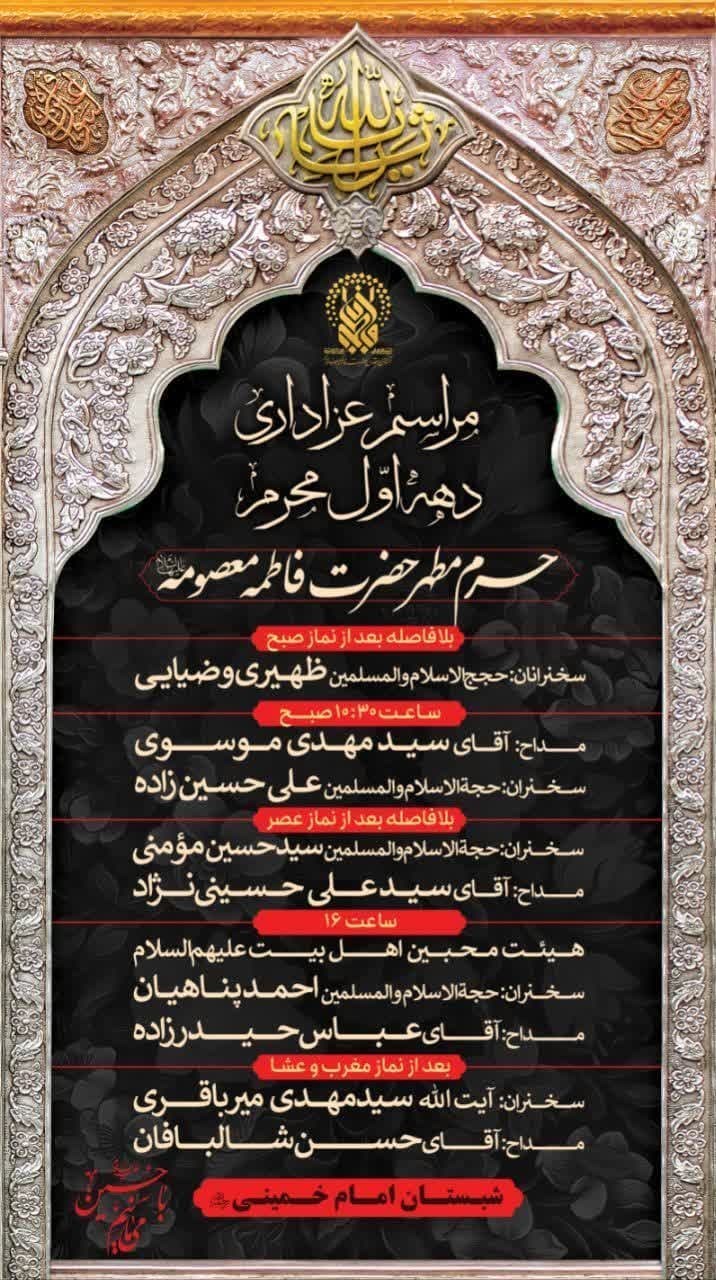 یا ثارالله
مراسم عزاداری
دهه اوّل محرم
حرم مطهر حضرت فاطمه معصومه
بلافاصله بعد از نماز صبح
سخنرانان: حجج‌الاسلام والمسلمین ظهیری و ضیایی
ساعت ۱۰:۳۰ صبح
مداح: آقای سید مهدی موسوی
سخنران: حجة‌الاسلام والمسلمین علی حسین زاده
بلافاصله بعد از نماز عصر
سخنران: حجة‌الاسلام والمسلمین سید حسین مؤمنی
مداح: آقای سید علی حسینی نژاد
ساعت ۱۶
هیئت محبین اهل بیت علیهم السلام
سخنران: حجة‌الاسلام والمسلمین احمد پناهیان
مداح: آقای عباس حیدرزاده
بعد از نماز مغرب و عشا
سخنران: آیت الله سید مهدی میرباقری
مداح: آقای حسن شالبافان
شبستان امام خمینی
با حسین
می‌مانیم